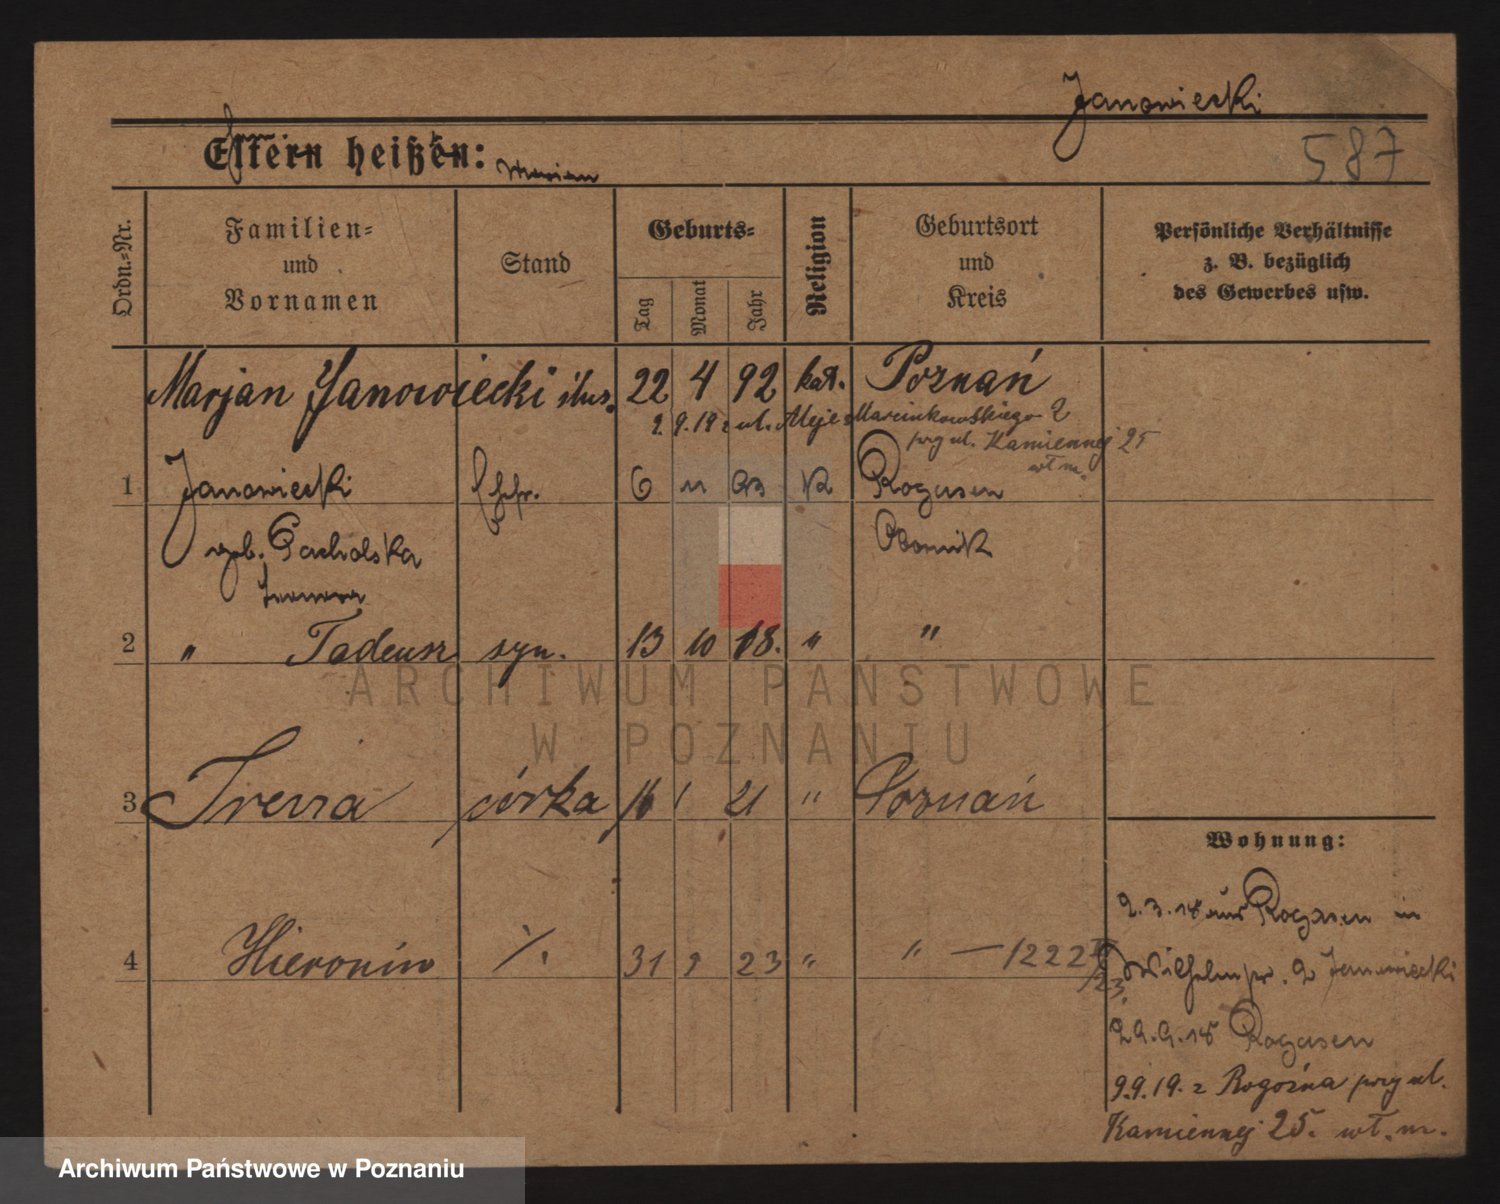 Janowiecki
587
Eltern heißen:
Marian
Ordn.-Nr.
Familien-
und
Vornamen
Stand
Geburts-
Tag
Monat
Jahr
Religion
Geburtsort
und
Kreis
Persönliche Verhältnisse
z. B. bezüglich
des Gewerbes usw.
Marjan Janowiecki ślus. 22 4 92 kat. Poznań
9.9.19 z ul. Aleje Marcinkowskiego 2
przy ul. Kamiennej 25
wł m.
1 Janowiecki Ehefr. 6 11 93 K Rogasen
geb. Pacholska Obornik
2 " Tadeusz syn. 13 10 18. " "
3 Irena córka 16 1 21 " Poznań
4 Hieronim ./. 31 9 23 " " — 1222
ARCHIWUM PAŃSTWOWE
W POZNANIU
Wohnung:
2.3.18 aus Rogasen in
Wilhelmstr. 2 Janowiecki
29.9.18 Rogasen
9.9.19. z Rogoźna przy ul.
Kamiennej 25. wł. m.
Archiwum Państwowe w Poznaniu